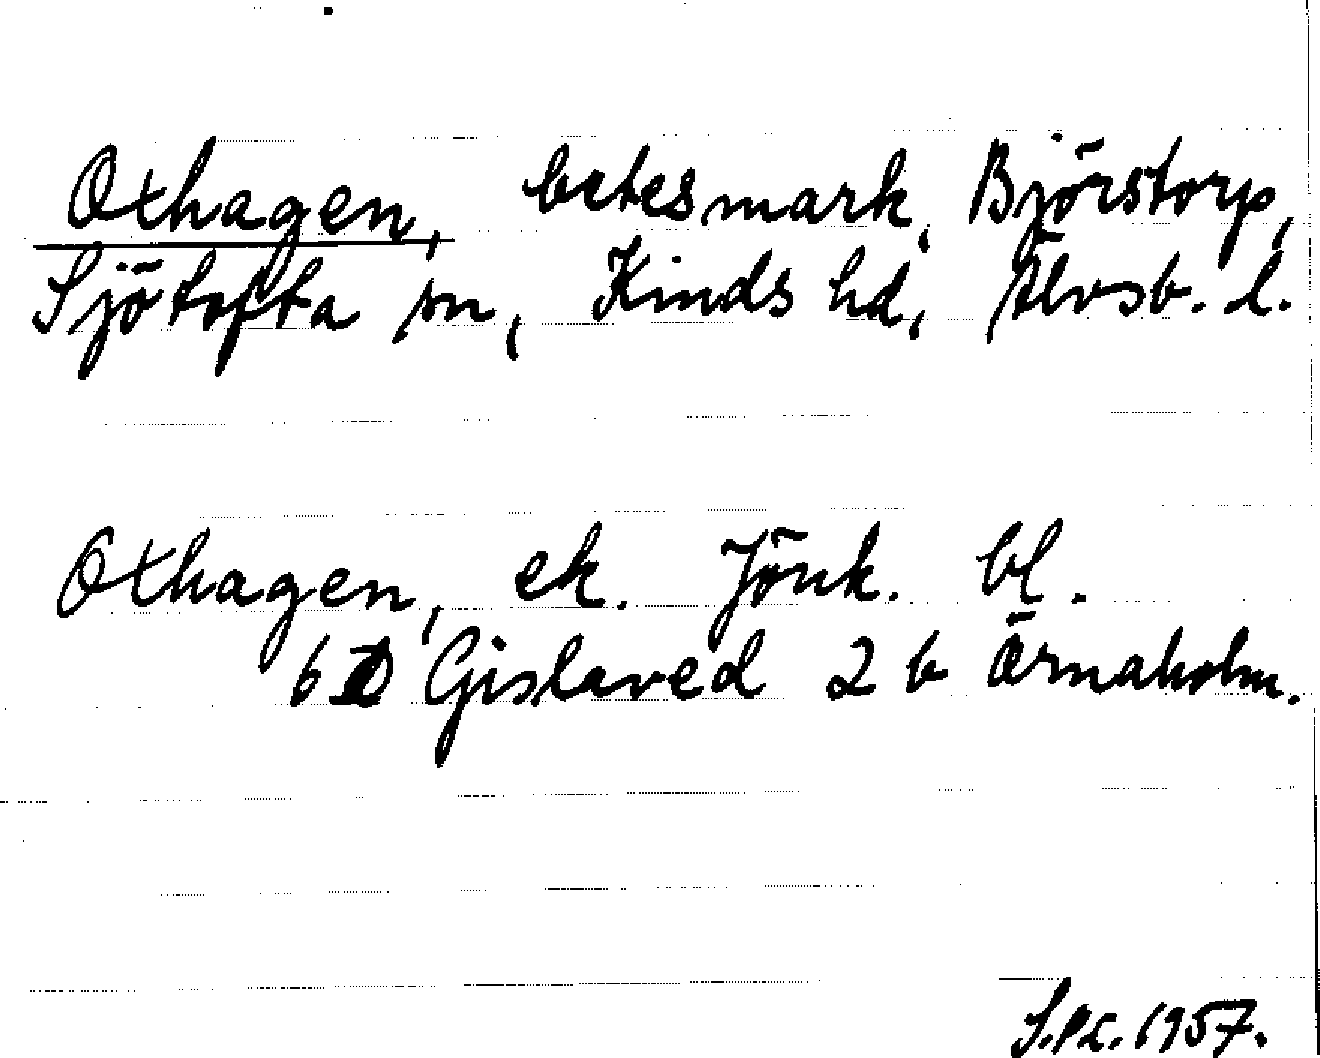 Oxhagen, betesmark, Björstorp,
Sjötofta sn, Kinds hd, Älvsb. l.
Oxhagen, ek. Jönk. bl.
6 D Gislaved 2 b Örnaholm.
1957.